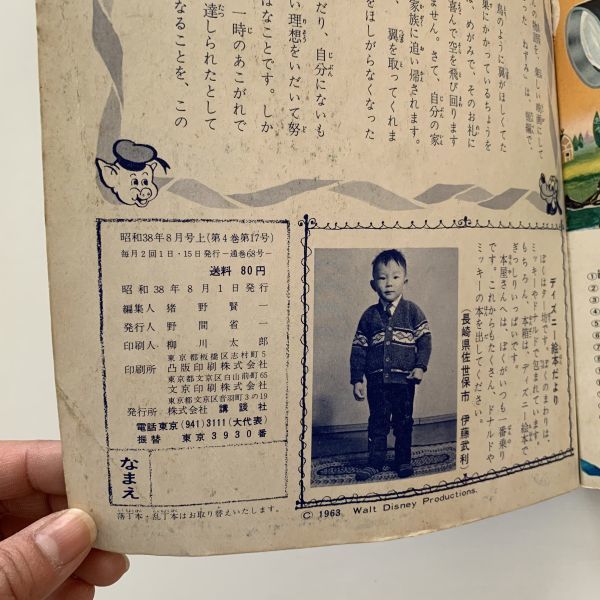 の物語を、楽しい映画にして
った「ねずみ」は、短編で、
鳥のように翼がほしくてた
巣にかかっているちょうを
は、めがみで、そのお礼に
喜んで空を飛び回ります
きです。さて、自分の家
家族に追い帰されます。
、翼を取ってくれま
をほしがらなくなった
だり、自分にないも
い理想をいだいて努
はなことです。しか
一時のあこがれで
達しられたとして
なることを、この
ディズニー絵本だより
ぼくは夕一坊です。ぼくのまわりは、
ミッキーやドナルドで包まれています。
もちろん、本箱は、ディズニー絵本で
ぎっしりいっぱいです。
本屋さんへは、ぼくがいつも一番乗り
です。これからもたくさん、ドナルドや
ミッキーの本を出してください。
(長崎県佐世保市 伊藤武利)
昭和38年8月号上(第4巻第17号)
毎月2回1日・15日発行―通巻68号―
送料 80円
昭和38年8月1日発行
編集人 猪野賢一
発行人 野間省一
印刷人 柳川太郎
東京都板橋区志村町5
印刷所 凸版印刷株式会社
東京都文京区白山前町65
文京印刷株式会社
東京都文京区音羽町3の19
発行所 株式会社 講談社
電話東京(941)3111(大代表)
振替 東京3930番
なまえ
落丁本・乱丁本はお取り替えいたします。
© 1963 Walt Disney Productions.